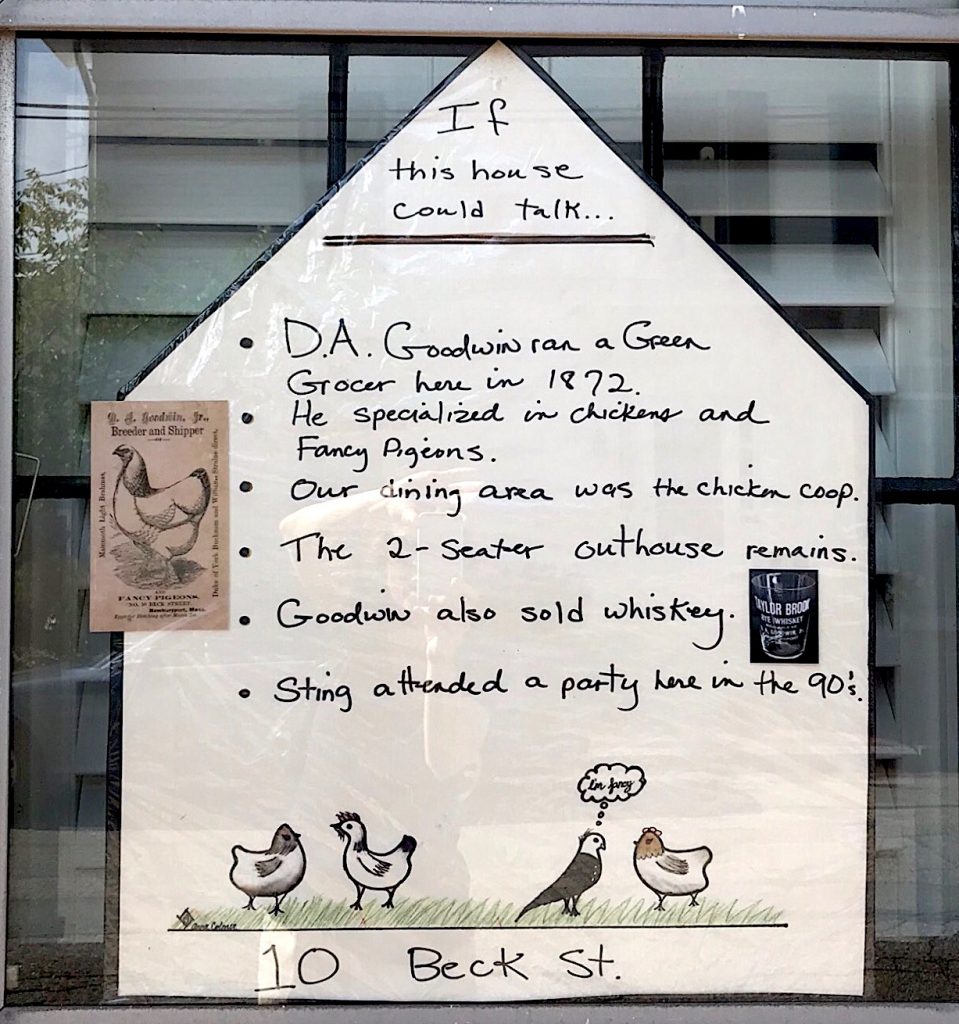 If
this house
could talk...
• D.A. Goodwin ran a Green
Grocer here in 1872.
• He specialized in chickens and
Fancy Pigeons.
• Our dining area was the chicken coop.
• The 2-Seater outhouse remains.
• Goodwin also sold whiskey.
• Sting attended a party here in the 90's.
D. A. Goodwin, Jr.,
Breeder and Shipper
OF
Mammoth Light Brahmas,
Duke of York Buckman and Williams Strains direct,
AND
FANCY PIGEONS,
NO. 10 BECK STREET,
Newburyport, Mass.
TAYLOR BROOK
RYE WHISKEY
D. A. GOODWIN, Jr.
I'm fancy
10 Beck St.